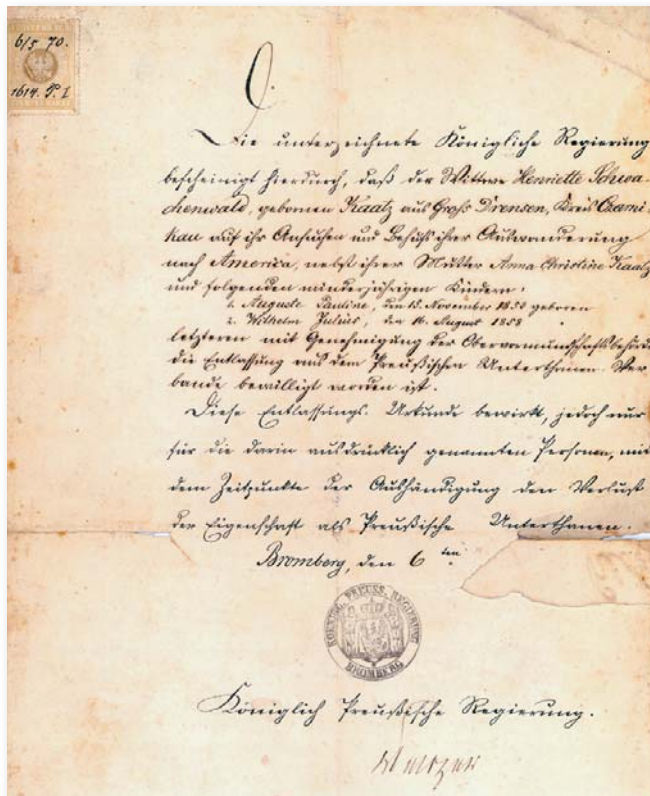 6/5 70.
1614. P. I
Die unterzeichnete Königliche Regierung
bescheinigt hierdurch, daß der Wittwe Henriette Schwa-
chenwald, gebornen Kaatz aus Groß Drensen, Kreis Czarni-
kau auf ihr Ansuchen und Behufs ihrer Auswanderung
nach America, nebst ihrer Mutter Anna Christine Kaatz
und folgenden minderjährigen Kindern:
1. Auguste Pauline, den 15. November 1850 geboren
2. Wilhelm Julius, den 16. August 1858 "
letzteren mit Genehmigung der Obervormundschaftsbehörde
die Entlassung aus dem Preußischen Unterthanen-Ver-
bande bewilligt worden ist.
Diese Entlassungs-Urkunde bewirkt, jedoch nur
für die darin ausdrücklich genannten Personen, mit
dem Zeitpunkte der Aushändigung den Verlust
der Eigenschaft als Preußische Unterthanen.
Bromberg, den 6ten
KOENIGL. PREUSS. REGIERUNG
BROMBERG
Königlich Preußische Regierung.